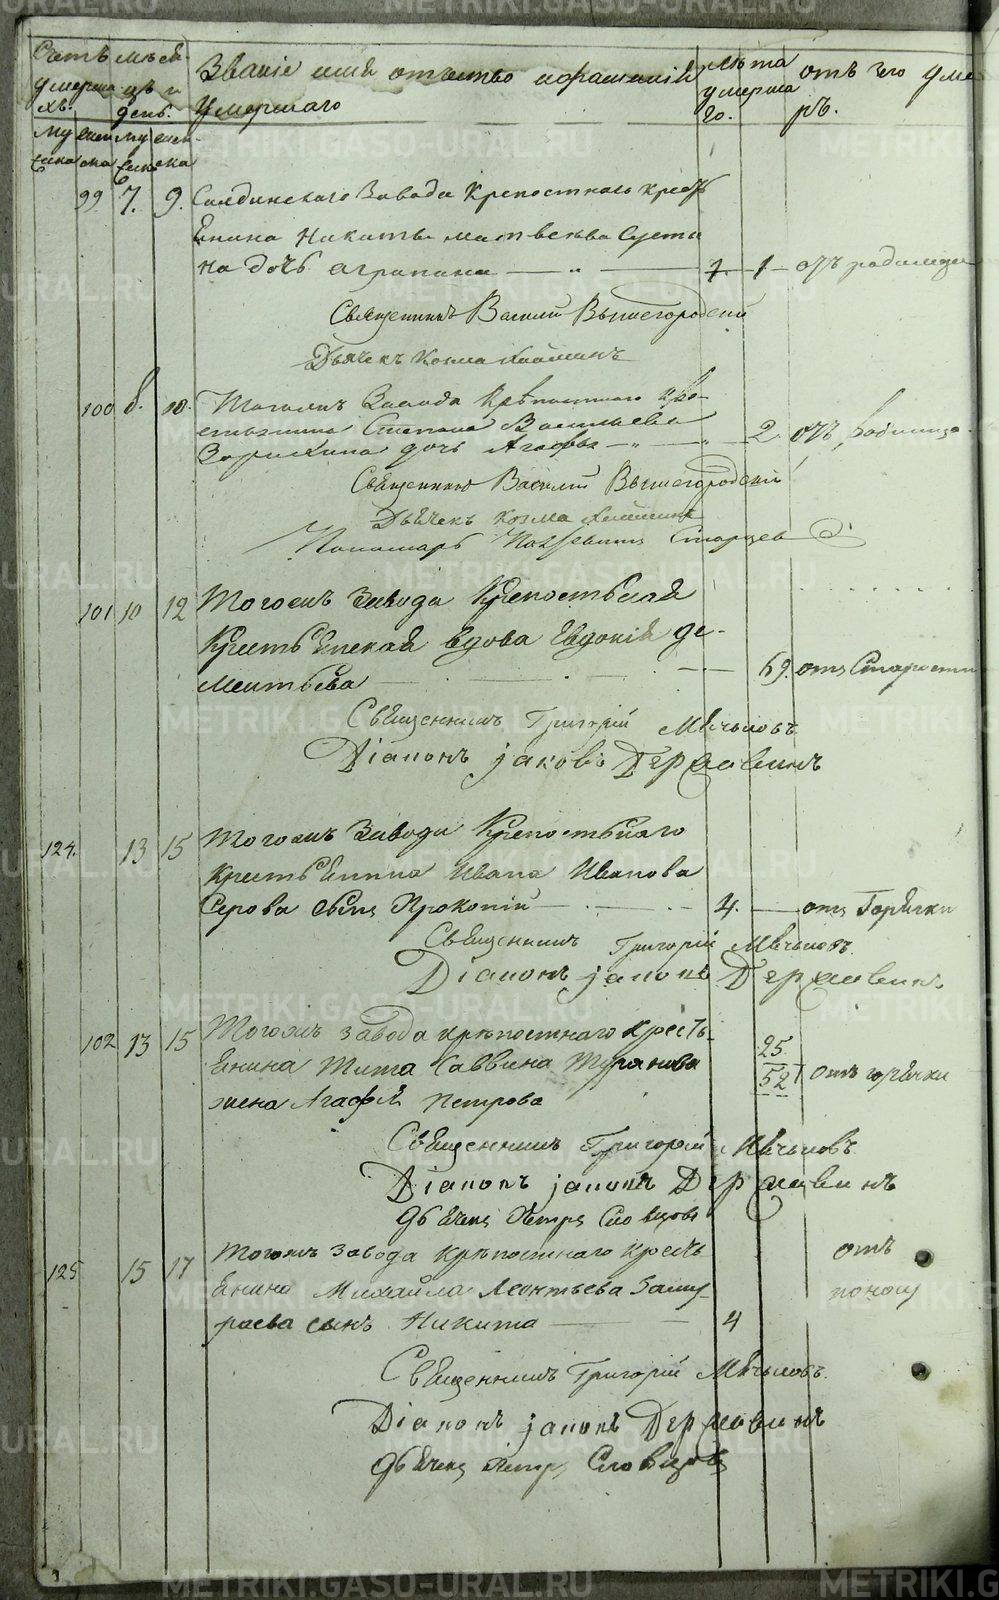 Счетъ умершихъ.
Мѣсяцъ и день.
Званіе имя отчество и фамилія умершаго
Лѣта умершаго.
отъ чего умеръ.
99 7. 9. Салдинскаго Завода Крепостнаго крестьянина Никиты Матвеева
на дочь Агрипина — 1 — отъ родимца
Священникъ Василій Вышегородскій
Дьячекъ Козма
100 8. 10. Тогожъ Завода Крѣпостнаго кре-
стьянина Степана Васильева
дочь Агафья — 2 отъ родимца
Священникъ Василій Вышегородскій
Дьячекъ Козма
Пономарь Старцев
101 10 12 Тогожъ Завода Крепостьная
Крестьянская вдова Евдокія де-
ментьева — 69. отъ Старости
Священникъ Григорій Мѣчьковъ
Діаконъ Іаковъ Державинъ
124. 13 15 Тогожъ Завода Крепостьнаго
Крестьянина Ивана Иванова
Серова сынъ Прокопій — 4. — отъ Горячки
Священникъ Григорій Мѣчьковъ
Діаконъ Іаковъ Державинъ
102 13 15 Тогожъ завода крѣпостнаго Кресть-
янина Тита Саввина
жена Агафья Петрова 25 52 отъ горячки
Священникъ Григорій Мѣчьковъ
Діаконъ Іаковъ Державинъ
Дьячекъ Петръ Словцовъ
125 15 17 Тогожъ завода Крѣпостнаго Кресть
янина Михайла Леонтьева
сынъ Никита — 4 отъ поносу
Священникъ Григорій Мѣчьковъ
Діаконъ Іаковъ Державинъ
Дьячекъ Петръ Словцовъ
METRIKI.GASO-URAL.RU